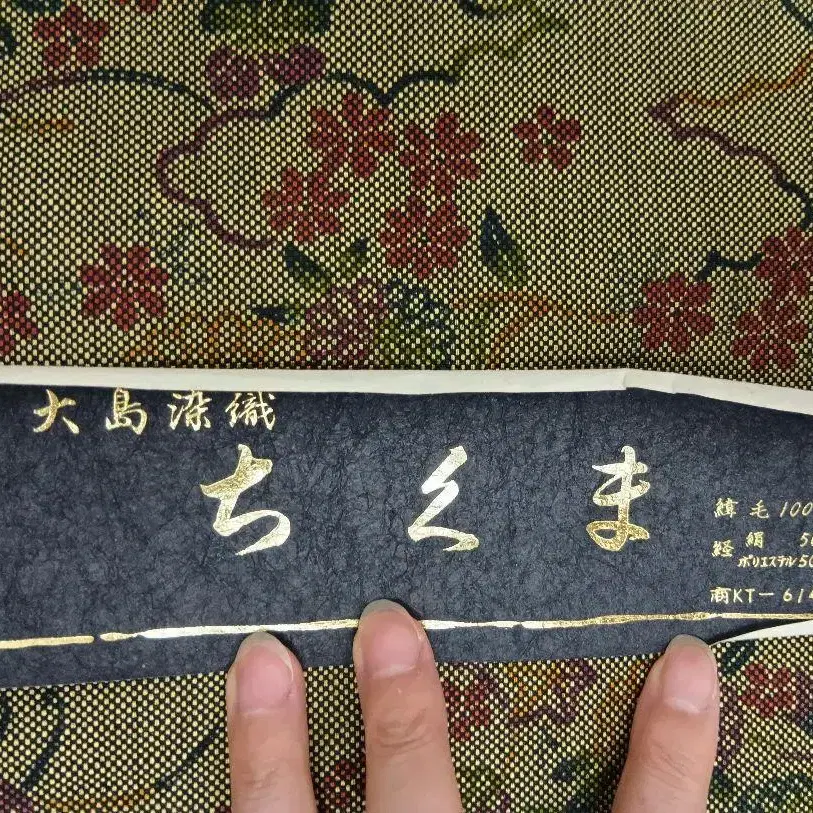 大島染織
ちくま
緯 毛 100
経 絹 50
ポリエステル 50
商KT－614